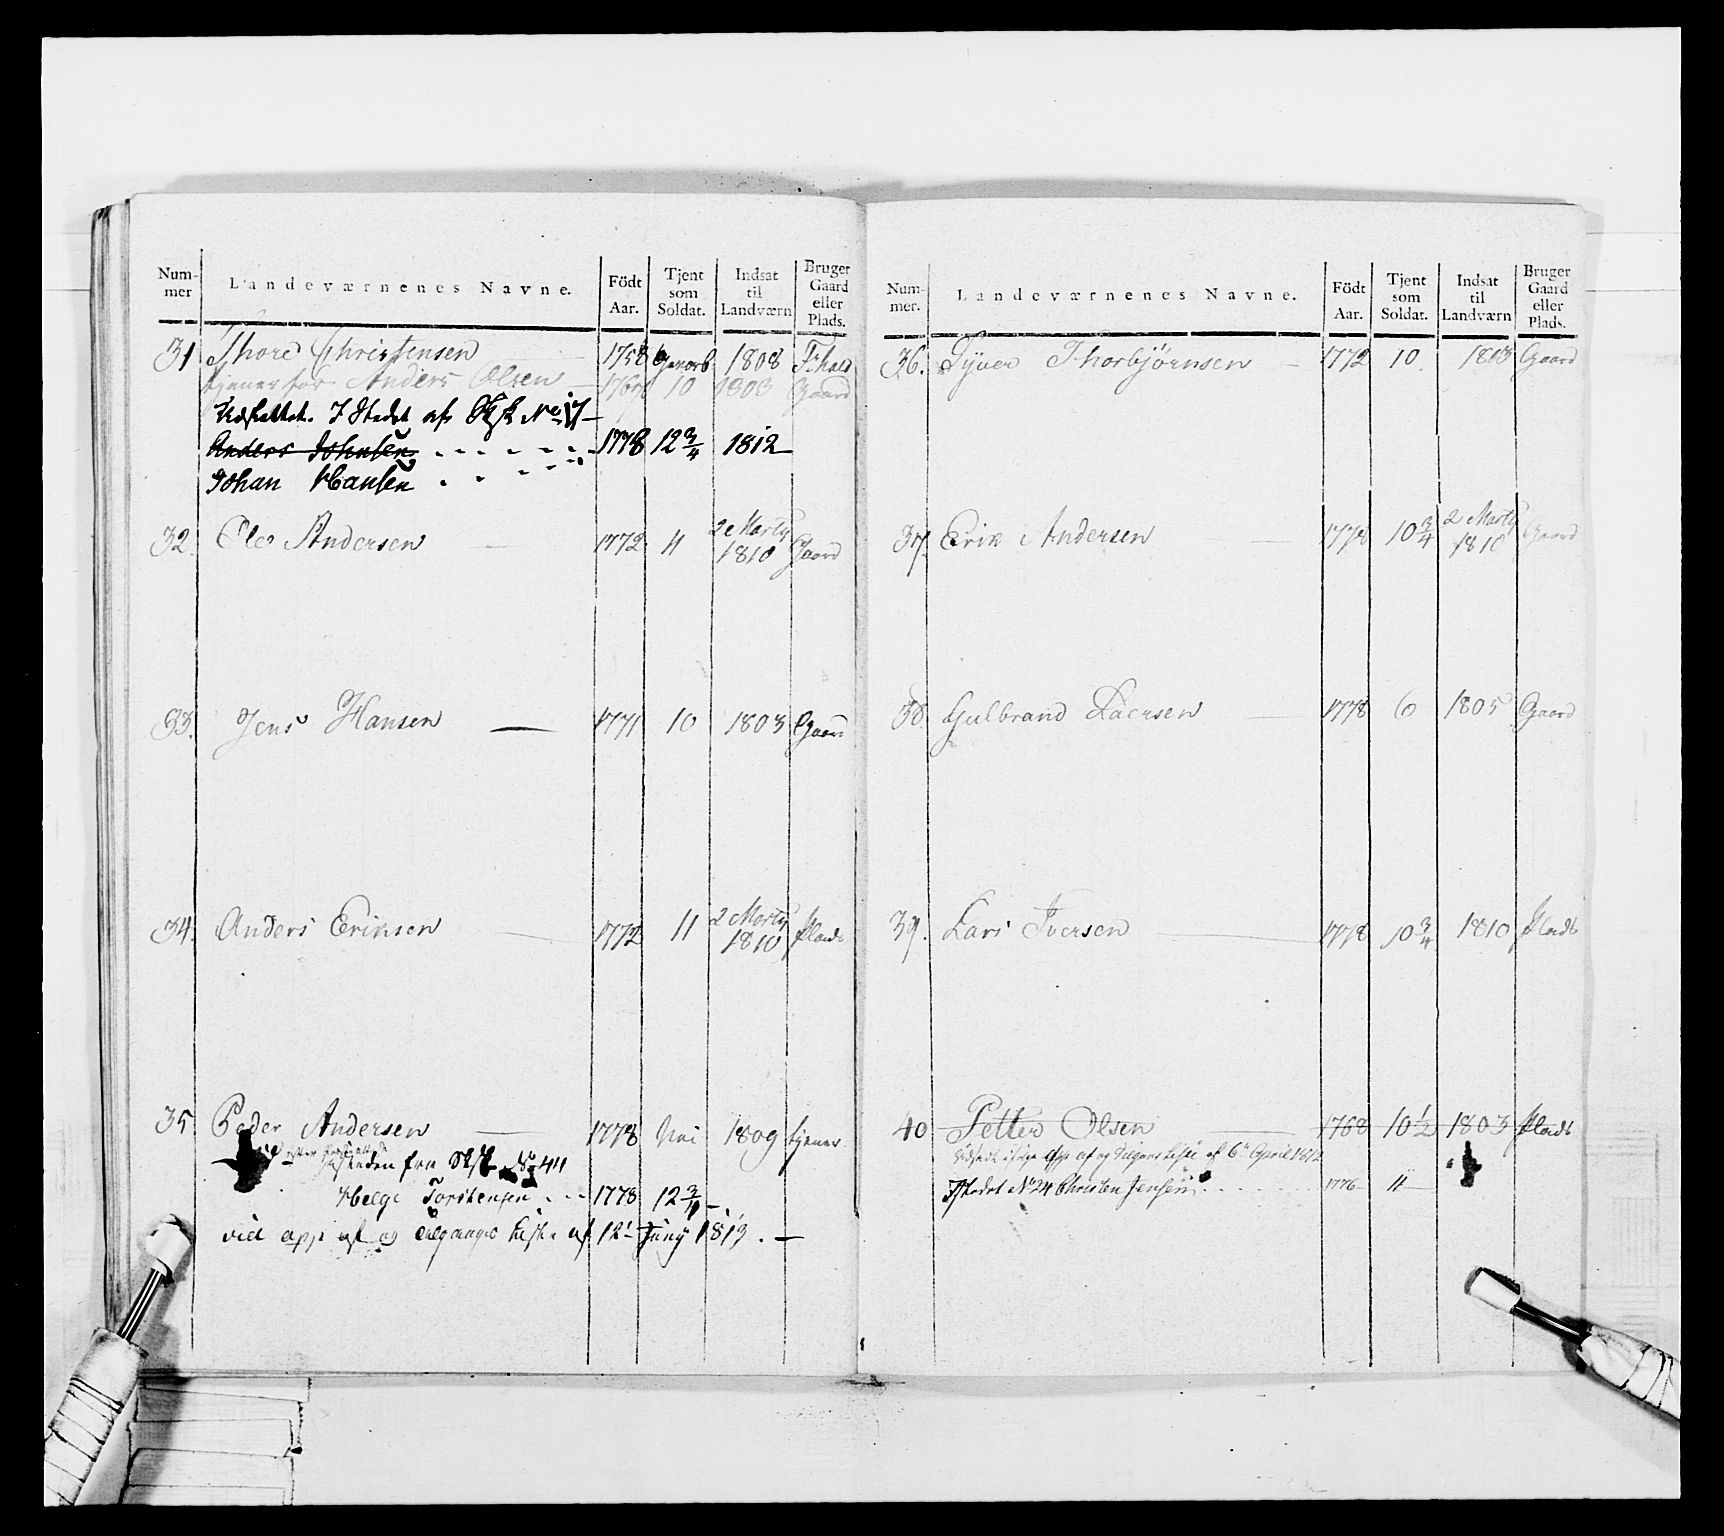 Num-
mer
Landeværnenes Navne.
Födt
Aar.
Tjent
som
Soldat.
Indsat
til
Landværn
Bruger
Gaard
eller
Plads.
31 Thore Christensen 1758 1808
tjener for Anders Olsen 10 1803 Gaard
I Stedet af No 17
Anders Johnsen 1778 12 3/4 1812
Johan Hansen
32. Ole Andersen 1772 11 2 Marty 1810 Gaard
33. Jens Hansen 1771 10 1803 Gaard
34. Anders Eriksen 1772 11 2 Marty 1810 Plads
35 Peder Andersen 1778 Nei 1809 tjener
fra No 44
Helge Torstensen 1778 12 3/4
vid app af og Tilgangs Liste af 12 Juny 1813.
Num-
mer.
Landeværnenes Navne.
Födt
Aar.
Tjent
som
Soldat.
Indsat
til
Landværn
Bruger
Gaard
eller
Plads.
36. Syver Thorbjørnsen 1772 10. 1803 Gaard
37. Erik Andersen 1778 10 3/4 2 Marty 1810 Gaard
38. Gulbrand Laersen 1778 6 1805 Gaard
39. Lars Iversen 1778 10 3/4 1810 Plads
40 Petter Olsen 1768 10 1/2 1803 Plads
app af og Tilgans Liste af 6 April 1812
Istedet No 24 Christen Jensen 1776 11